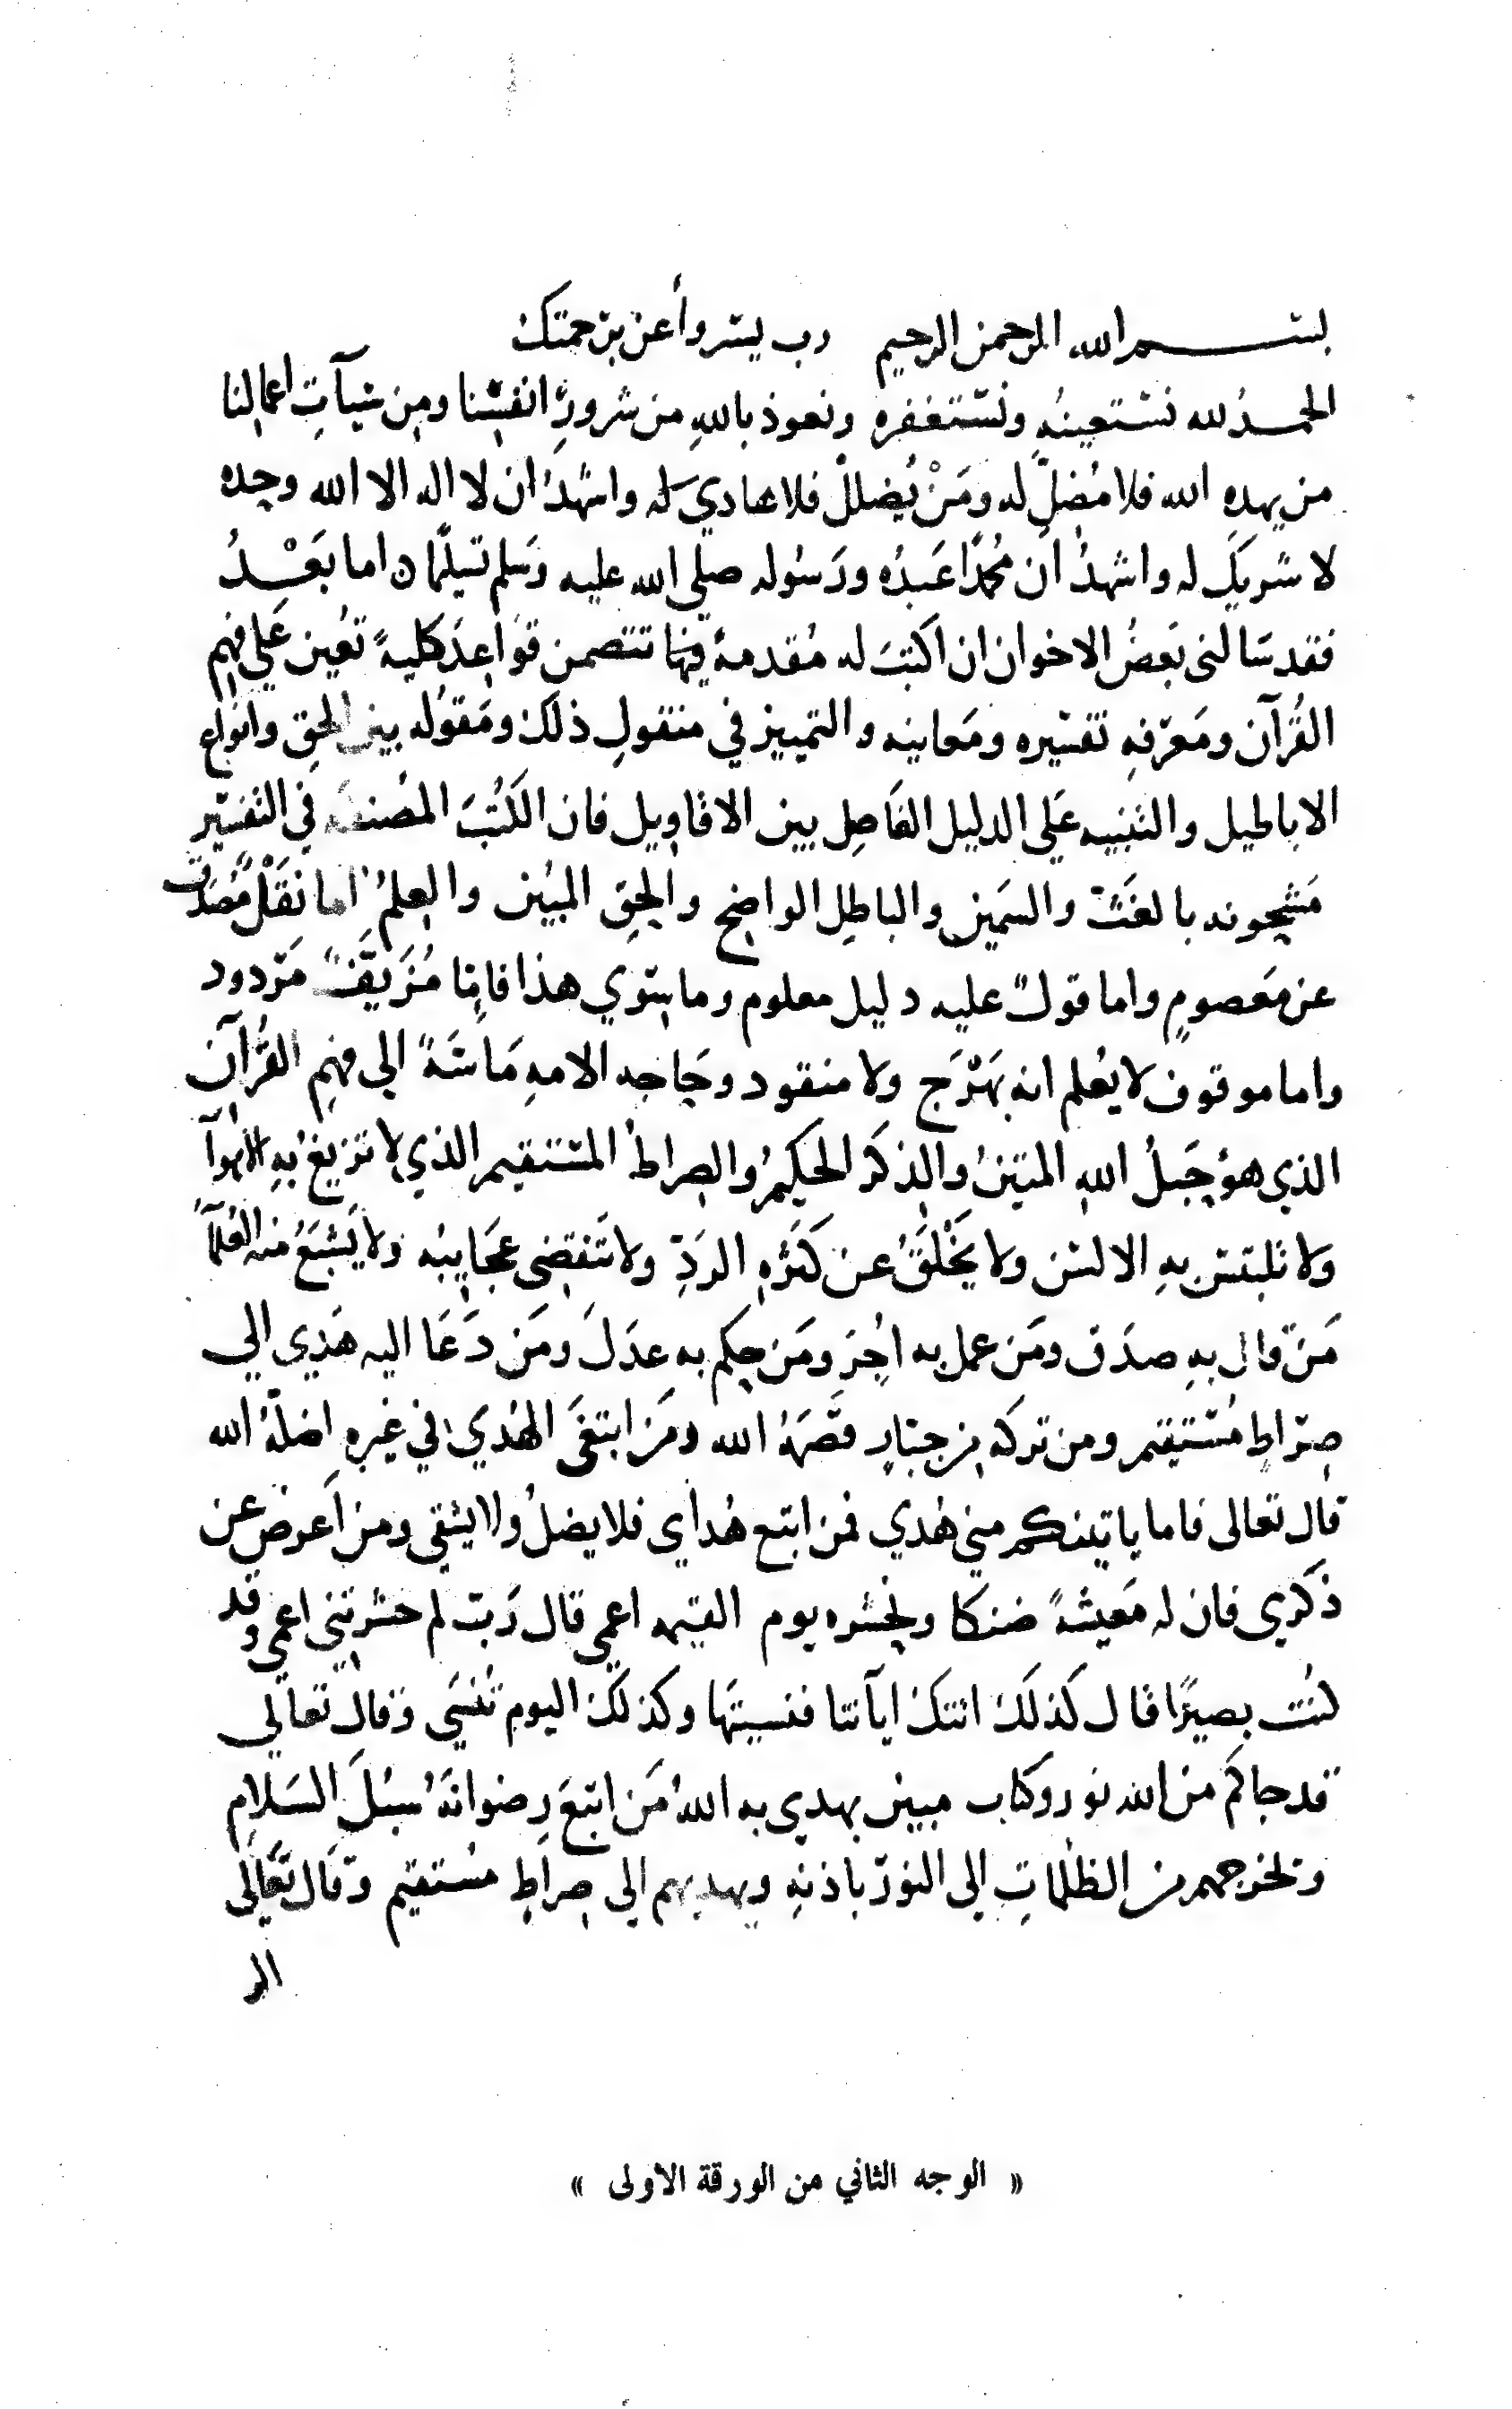 بسم الله الرحمن الرحيم رب يسر وأعن برحمتك
الحمدُ لله نستعينُه ونستغفره ونعوذ باللهِ من شرورِ انفسنا ومن سيآتِ اعمالنا
من يهدِه الله فلا مُضلّ له ومَنْ يُضلل فلا هاديَ له واشهدُ ان لا اله الا الله وحده
لا شريكَ له واشهدُ ان مُحمدًا عَبدُه ورَسُوله صلى الله عليه وَسَلم تسليمًا اما بَعْدُ
فقد سَالنى بَعضُ الاخوان ان اكتبَ له مُقدمةً فيها تتضمن قوَاعدَ كليةً تعُين عَلى فهم
القُرآن ومَعرفهِ تفسيره ومَعانيه والتمييز في منقولِ ذلك ومَعقوُله بين الحقِ وانواع
الاباطيل والتنبيه عَلى الدليل الفَاصِل بين الاقاويل فان الكُتُبَ المصُنفه في التفسيْر
مَشحونه بالغَثّ والسَمين والباطِل الواضح والحقِ المبيُن والعِلمُ اما نَقْلٌ مُصَدق
عن مَعصومٍ واما قولٌ عليه دليل معلوم وما سِوي هذا فامّا مُزَيَّفٌ مَردود
واما موقوف لا يعُلم انه بَهْرَج ولا منقود وحَاجه الامهِ مَاسَّةً الي فهمِ القُرآن
الذي هو حَبلُ اللهِ المتينُ والذِكرُ الحَكيمُ والصِراطُ المسْتقيم الذي لا تزيغ بهِ الأهوآ
وَلا تلبتس بهِ الالسن ولا يَخْلَقُ عن كَثرهِ الردِّ ولا تَنقضى عجَايبُه ولا يَشبَعُ منه العُلمآءُ
مَن قال بهِ صدَق ومَن عمل به اُجِرَ ومَن حكم به عدَلَ ومَن دَعَا اليه هَدي الي
صِرَاطٍ مُسْتقيم ومن تركه مِن جبّارٍ قصَمهُ الله ومَن ابتغَى الهُديَ في غيره اضلّهُ الله
قال تعالى فاما ياتينكم مني هُدي فمن اتبع هُدايَ فلا يضلُ ولا يشقي ومن اَعرض عن
ذكري فان له مَعيشةً ضنكا ونحشره يوم القيمه اعمى قال رَب لم حشرتني اعمى وقد
كنُت بصيرًا قال كَذلَك اتتكَ اياتنا فنسيتَها وكذلكَ اليوم تُنسَى وَقال تعالي
قد جاكم من الله نور وكتاب مبين يهدي به اللهُ مَن اتبَعَ رِضوانَهُ سُبُلَ السَلامِ
ويخرجهم من الظلماتِ الي النورِ باذنهِ ويهديهم الى صِراطٍ مستقيم وقَال تَعَالَى
الر
« الوجه الثاني من الورقة الأولى »